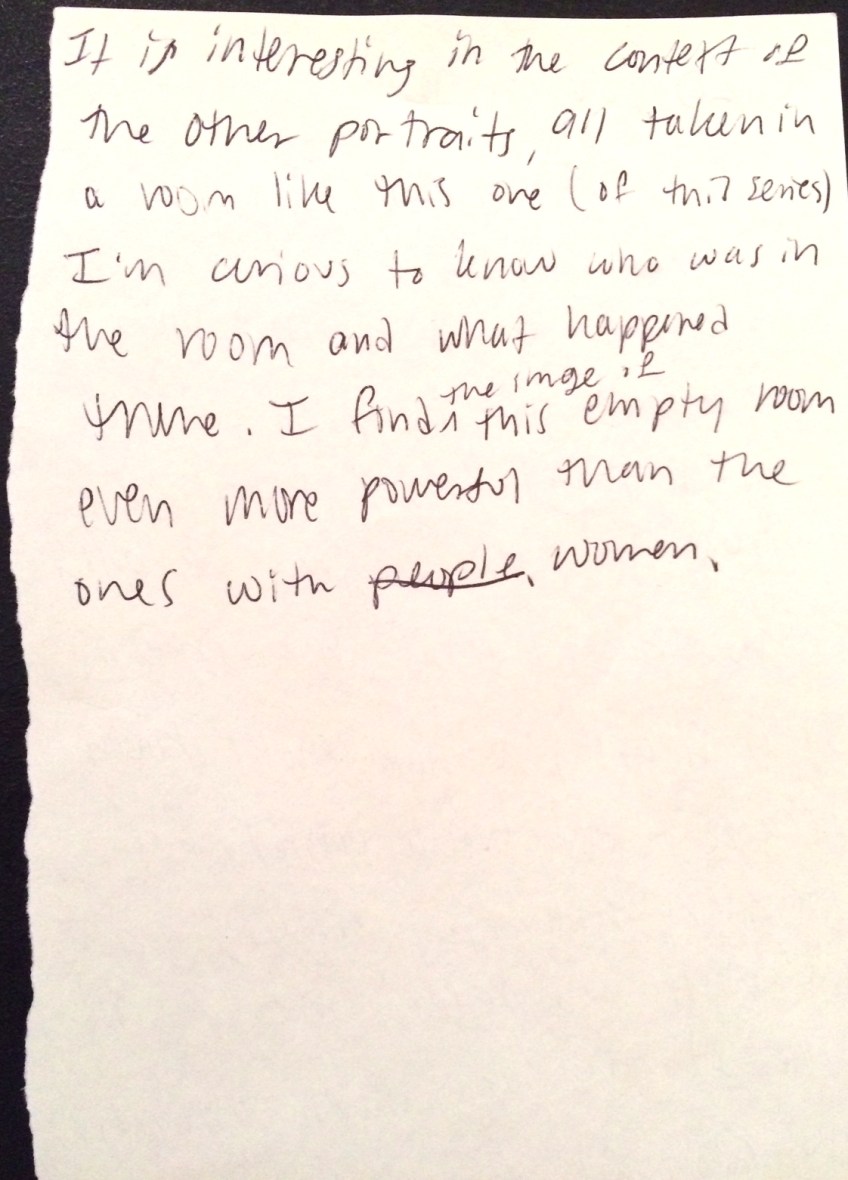 It is interesting in the context of
the other portraits, all taken in
a room like this one (of this series)
I'm curious to know who was in
the room and what happened
there. I find the image of this empty room
even more powerful than the
ones with people, women.